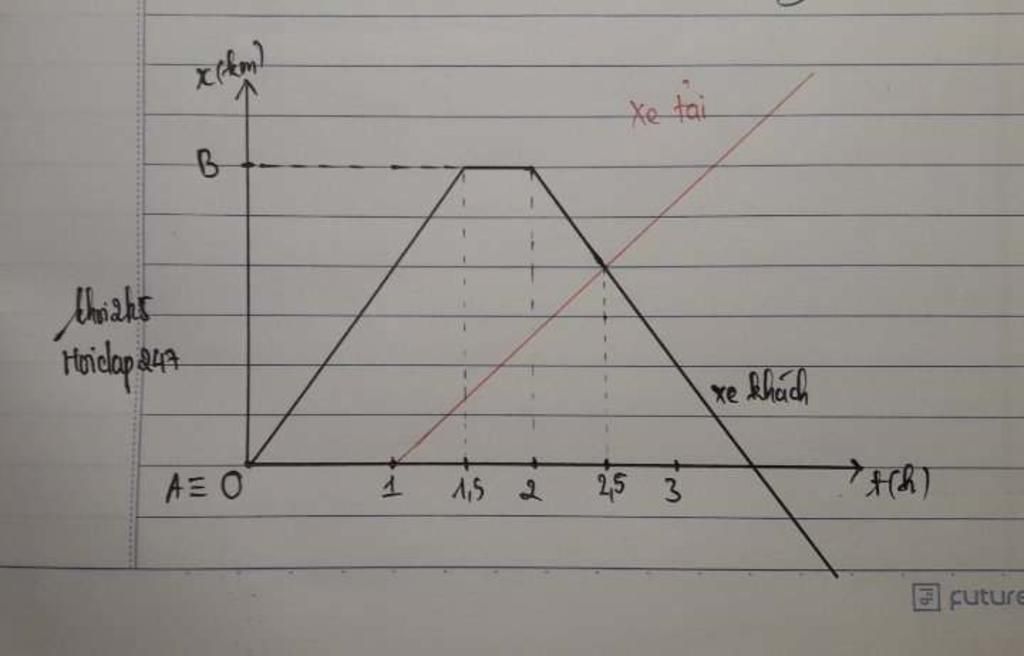 x(km)
xe tải
B
khoi2k5
Hoidap247
xe khách
A≡O 1 1,5 2 2,5 3 t(h)
future